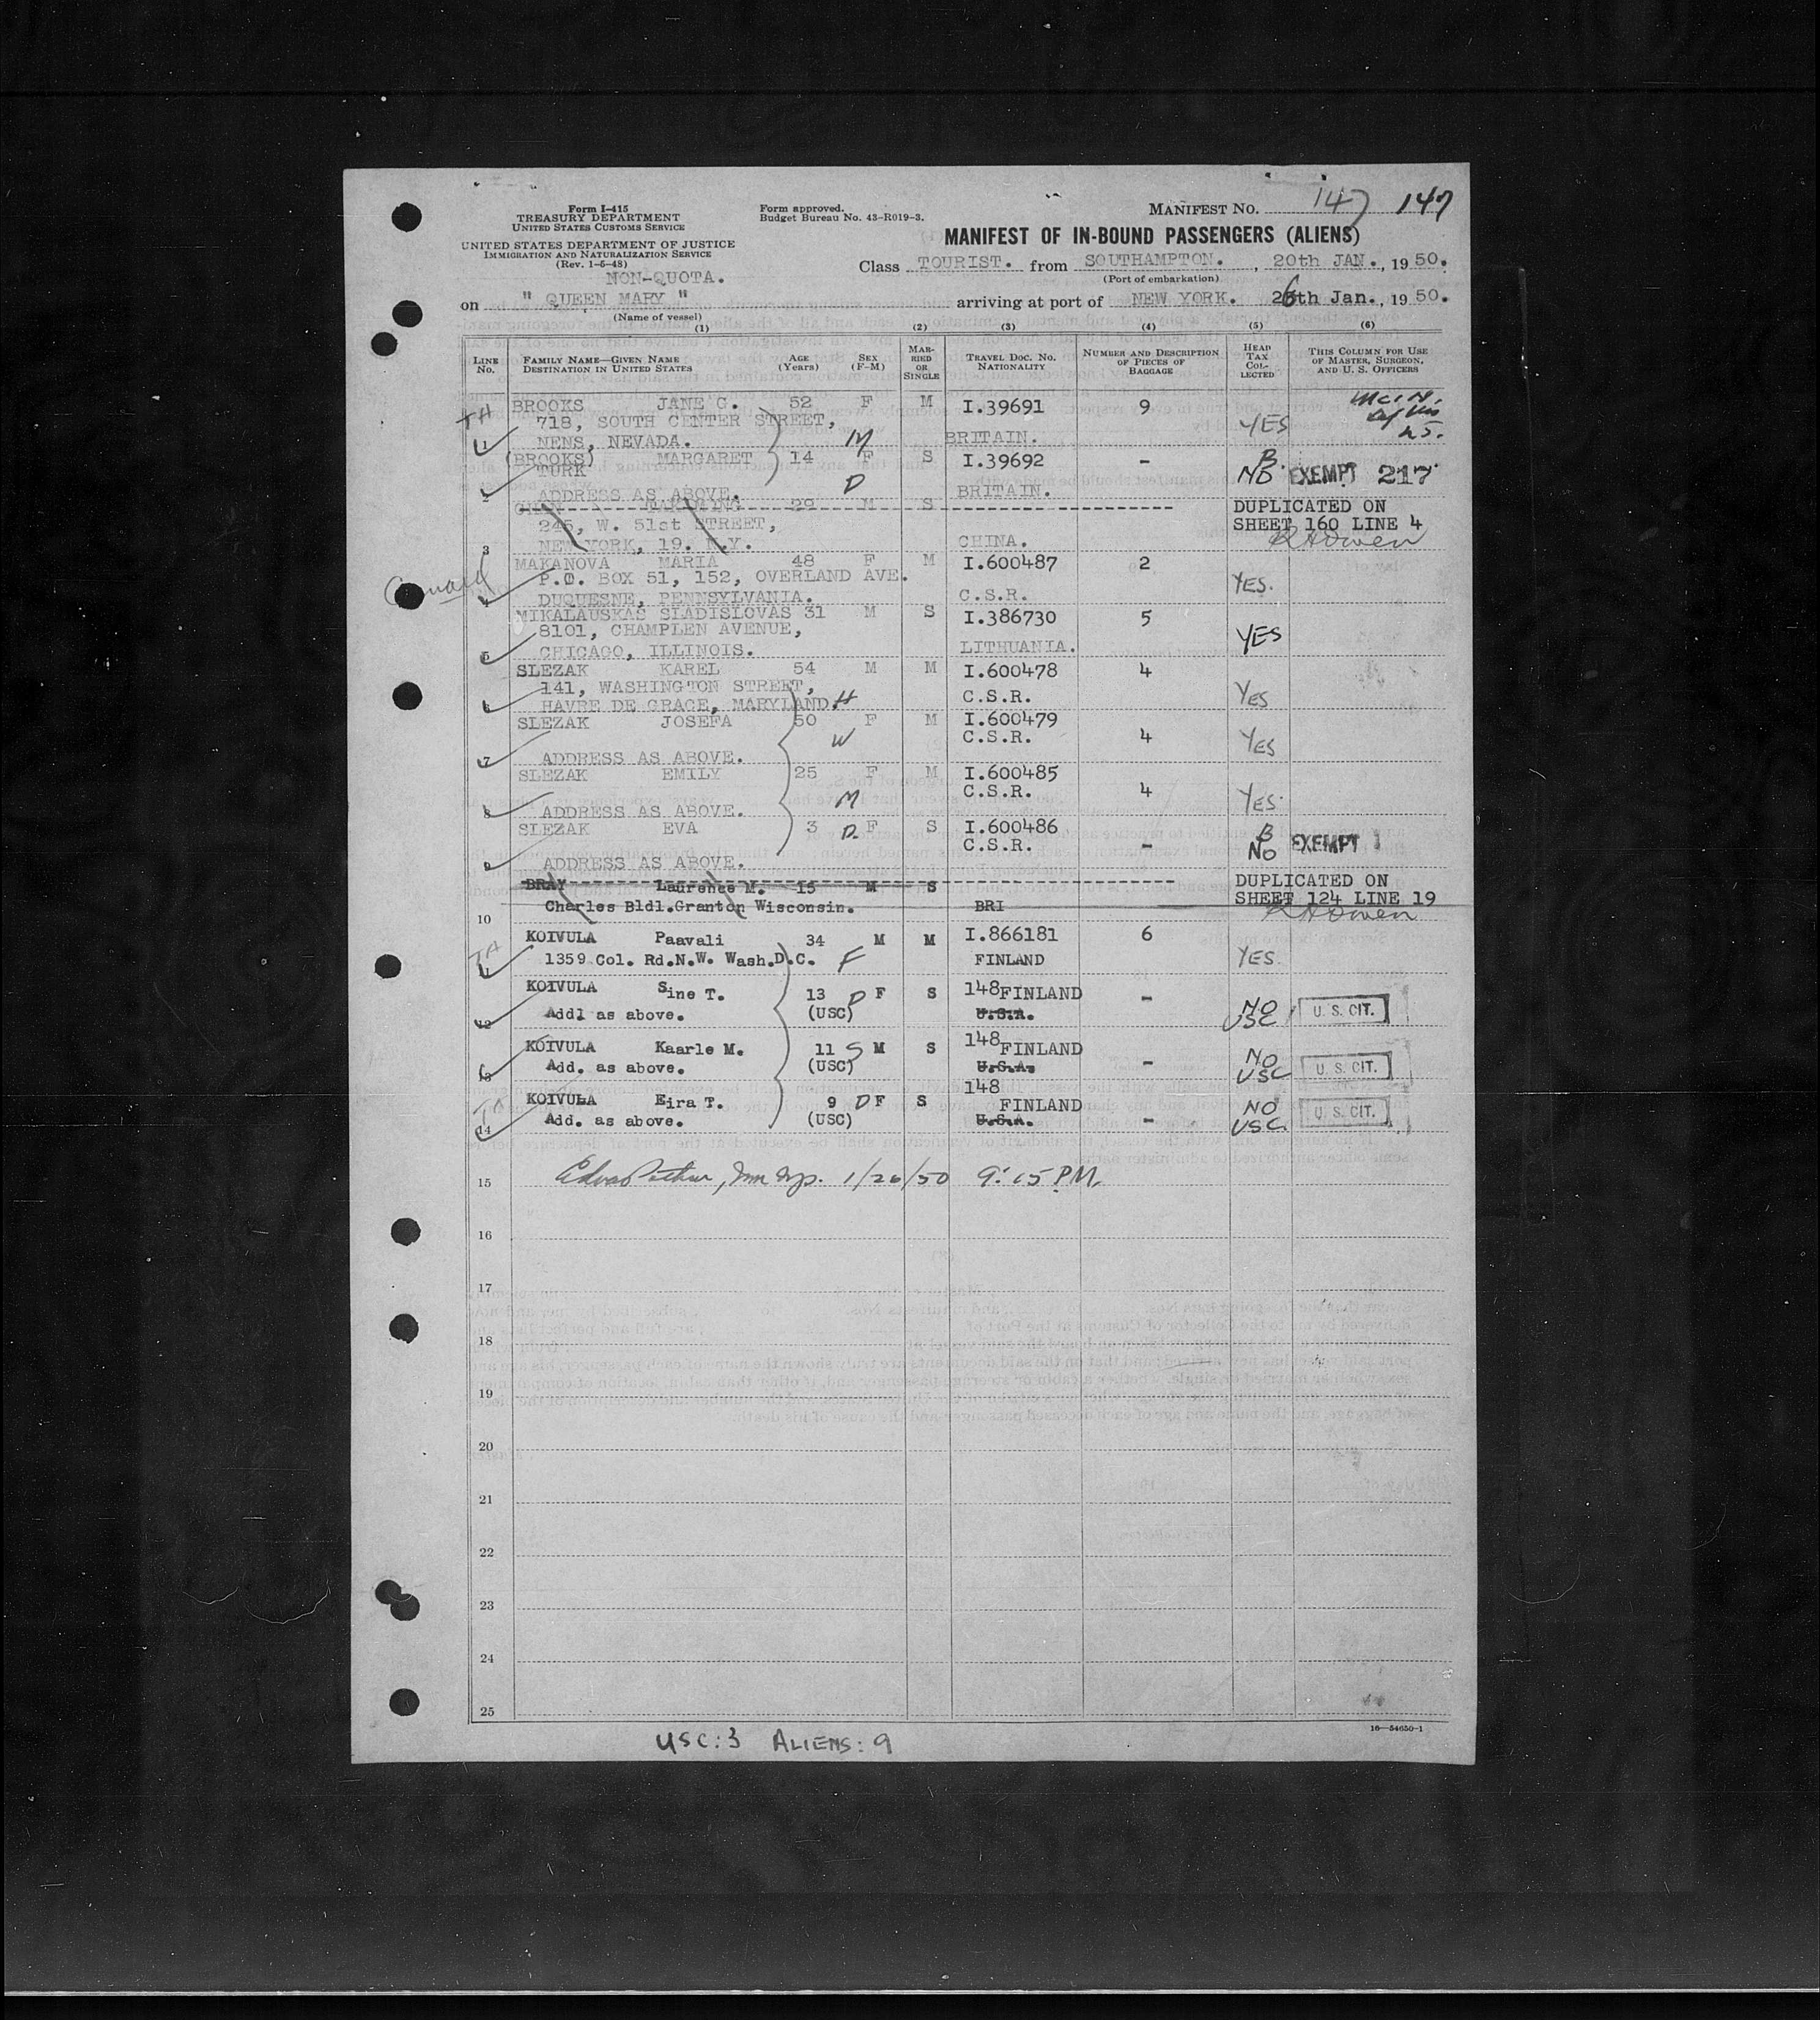 Form I-415
TREASURY DEPARTMENT
UNITED STATES CUSTOMS SERVICE
UNITED STATES DEPARTMENT OF JUSTICE
IMMIGRATION AND NATURALIZATION SERVICE
(Rev. 1-5-48)
Form approved.
Budget Bureau No. 43-R019-3.
MANIFEST NO. 147 147
MANIFEST OF IN-BOUND PASSENGERS (ALIENS)
NON-QUOTA.
Class TOURIST. from SOUTHAMPTON. , 20th JAN. , 19 50.
(Port of embarkation)
on " QUEEN MARY " arriving at port of NEW YORK. 26th Jan. , 19 50.
(Name of vessel)
(1) (2) (3) (4) (5) (6)
LINE No. FAMILY NAME—GIVEN NAME DESTINATION IN UNITED STATES AGE (Years) SEX (F-M) MARRIED OR SINGLE TRAVEL DOC. NO. NATIONALITY NUMBER AND DESCRIPTION OF PIECES OF BAGGAGE HEAD TAX COLLECTED THIS COLUMN FOR USE OF MASTER, SURGEON, AND U. S. OFFICERS
BROOKS JANE G. 52 F M I.39691 9
718, SOUTH CENTER STREET, YES
1 NENS, NEVADA. M BRITAIN.
(BROOKS) MARGARET 14 F S I.39692 - B
TURK NO EXEMPT 217
2 ADDRESS AS ABOVE. D BRITAIN.
29 M S DUPLICATED ON
245, W. 51st STREET, SHEET 160 LINE 4
3 NEW YORK, 19. N.Y. CHINA. R H Owen
MAKANOVA MARIA 48 F M I.600487 2
P.O. BOX 51, 152, OVERLAND AVE. YES.
4 DUQUESNE, PENNSYLVANIA. C.S.R.
MIKALAUSKAS SLADISLOVAS 31 M S I.386730 5
8101, CHAMPLEN AVENUE, YES
5 CHICAGO, ILLINOIS. LITHUANIA.
SLEZAK KAREL 54 M M I.600478 4
141, WASHINGTON STREET, C.S.R. YES
6 HAVRE DE GRACE, MARYLAND. H
SLEZAK JOSEFA 50 F M I.600479
W C.S.R. 4 YES
7 ADDRESS AS ABOVE.
SLEZAK EMILY 25 F M I.600485
M C.S.R. 4 YES.
8 ADDRESS AS ABOVE.
SLEZAK EVA 3 D. F S I.600486 B
C.S.R. - NO EXEMPT 1
9 ADDRESS AS ABOVE.
BRAY Laurence M. 15 M S DUPLICATED ON
Charles Bldl.Granton Wisconsin. BRI SHEET 124 LINE 19
10 R H Owen
KOIVULA Paavali 34 M M I.866181 6
11 1359 Col. Rd.N.W. Wash.D.C. F FINLAND YES.
KOIVULA Sine T. 13 D F S 148 FINLAND -
12 Addl as above. (USC) U.S.A. NO USC U. S. CIT.
KOIVULA Kaarle M. 11 S M S 148 FINLAND
13 Add. as above. (USC) U.S.A. - NO USC U. S. CIT.
148
KOIVULA Eira T. 9 D F S FINLAND NO U. S. CIT.
14 Add. as above. (USC) U.S.A. - USC.
15 1/26/50 9:15 PM.
16
17
18
19
20
21
22
23
24
25
16—54650-1
USC: 3 ALIENS: 9